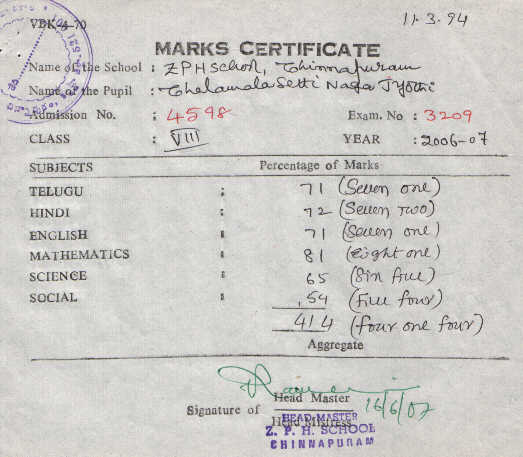 VDK-4-70
11.3.94
MARKS CERTIFICATE
Name of the School : ZPH School, Chinnapuram
Name of the Pupil : Chalamala Setti Naga Jyothi
Admission No. : 4598 Exam. No : 3209
CLASS : VIII YEAR : 2006-07
SUBJECTS Percentage of Marks
TELUGU : 71 (Seven one)
HINDI : 72 (Seven Two)
ENGLISH : 71 (Seven one)
MATHEMATICS : 81 (eight one)
SCIENCE : 65 (Six five)
SOCIAL : 54 (Five four)
414 (four one four)
Aggregate
Signature of Head Master
Head Mistress
16/6/07
HEAD MASTER
Z. P. H. SCHOOL
CHINNAPURAM